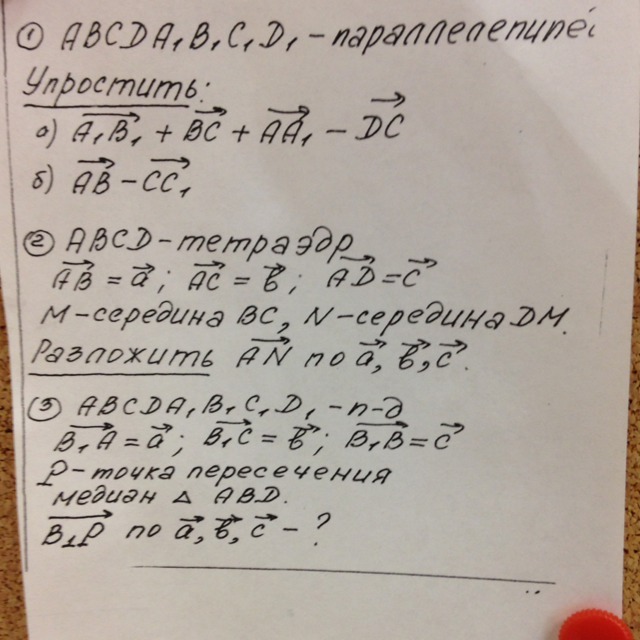 ① ABCDA₁B₁C₁D₁ – параллелепипе
Упростить:
а) A₁B₁ + BC + AA₁ – DC
б) AB – CC₁
② ABCD – тетраэдр
AB = a; AC = в; AD = c
M – середина BC, N – середина DM.
Разложить AN по a, в, c.
③ ABCDA₁B₁C₁D₁ – п-д
B₁A = a; B₁C = в; B₁B = c
P – точка пересечения
медиан Δ ABD.
B₁P по a, в, c – ?